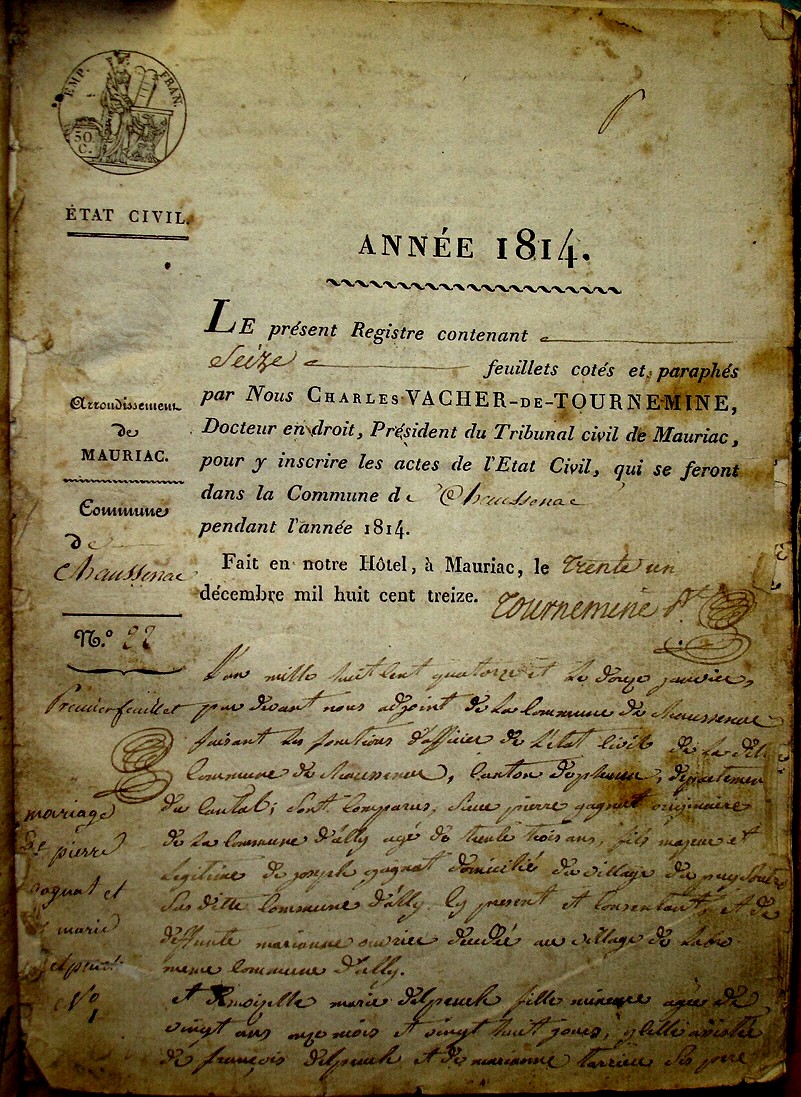 EMP. FRAN.
50
C.
ÉTAT CIVIL.
ANNÉE 1814.
LE présent Registre contenant
Seize feuillets cotés et paraphés
par Nous CHARLES VACHER-DE-TOURNEMINE,
Docteur en droit, Président du Tribunal civil de Mauriac,
pour y inscrire les actes de l'Etat Civil, qui se feront
dans la Commune de Chaussenac
pendant l'année 1814.
Fait en notre Hôtel, à Mauriac, le trente un
décembre mil huit cent treize.
Tournemine
Arrondissement
de
MAURIAC.
Commune
De
Chaussenac
N.º 22
Premier feuillet
mariage
de pierre
gagnat et
marie
delpeuch
Nº 1
L'an mille huit cent quatorze et le douze janvier,
par devant nous adjoint de la Commune de Chaussenac
faisant les fonctions d'officier de l'état civil de la dite
Commune de Chaussenac, Canton de pleaux, département
du Cantal, sont Comparus, sieur pierre gagnat originaire
de la Commune d'ally agé de trente trois ans, fils majeur et
legitime de joseph gagnat domicilié du village du
sus dite Commune d'ally. Cy present et Consentant, et de
deffunte marianne ouvrier décédée au village de
meme Commune d'ally.
et demoiselle marie delpeuch fille mineure agée de
vingt ans onze mois et vingt huit jours, assistée
de françois delpeuch et de marianne tarrieu ses pere